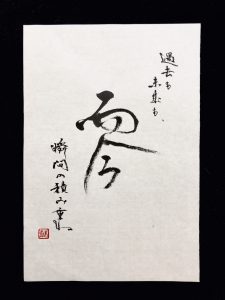 過去も
未来も、
而今
瞬間の積み重ね